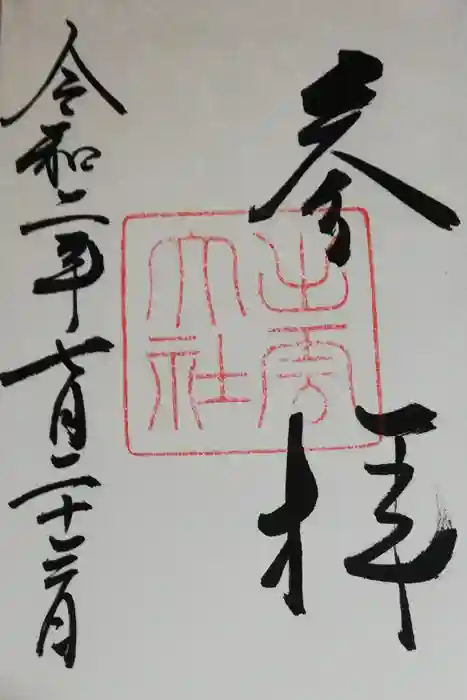 奉拝
出雲
大社
令和二年七月二十三日